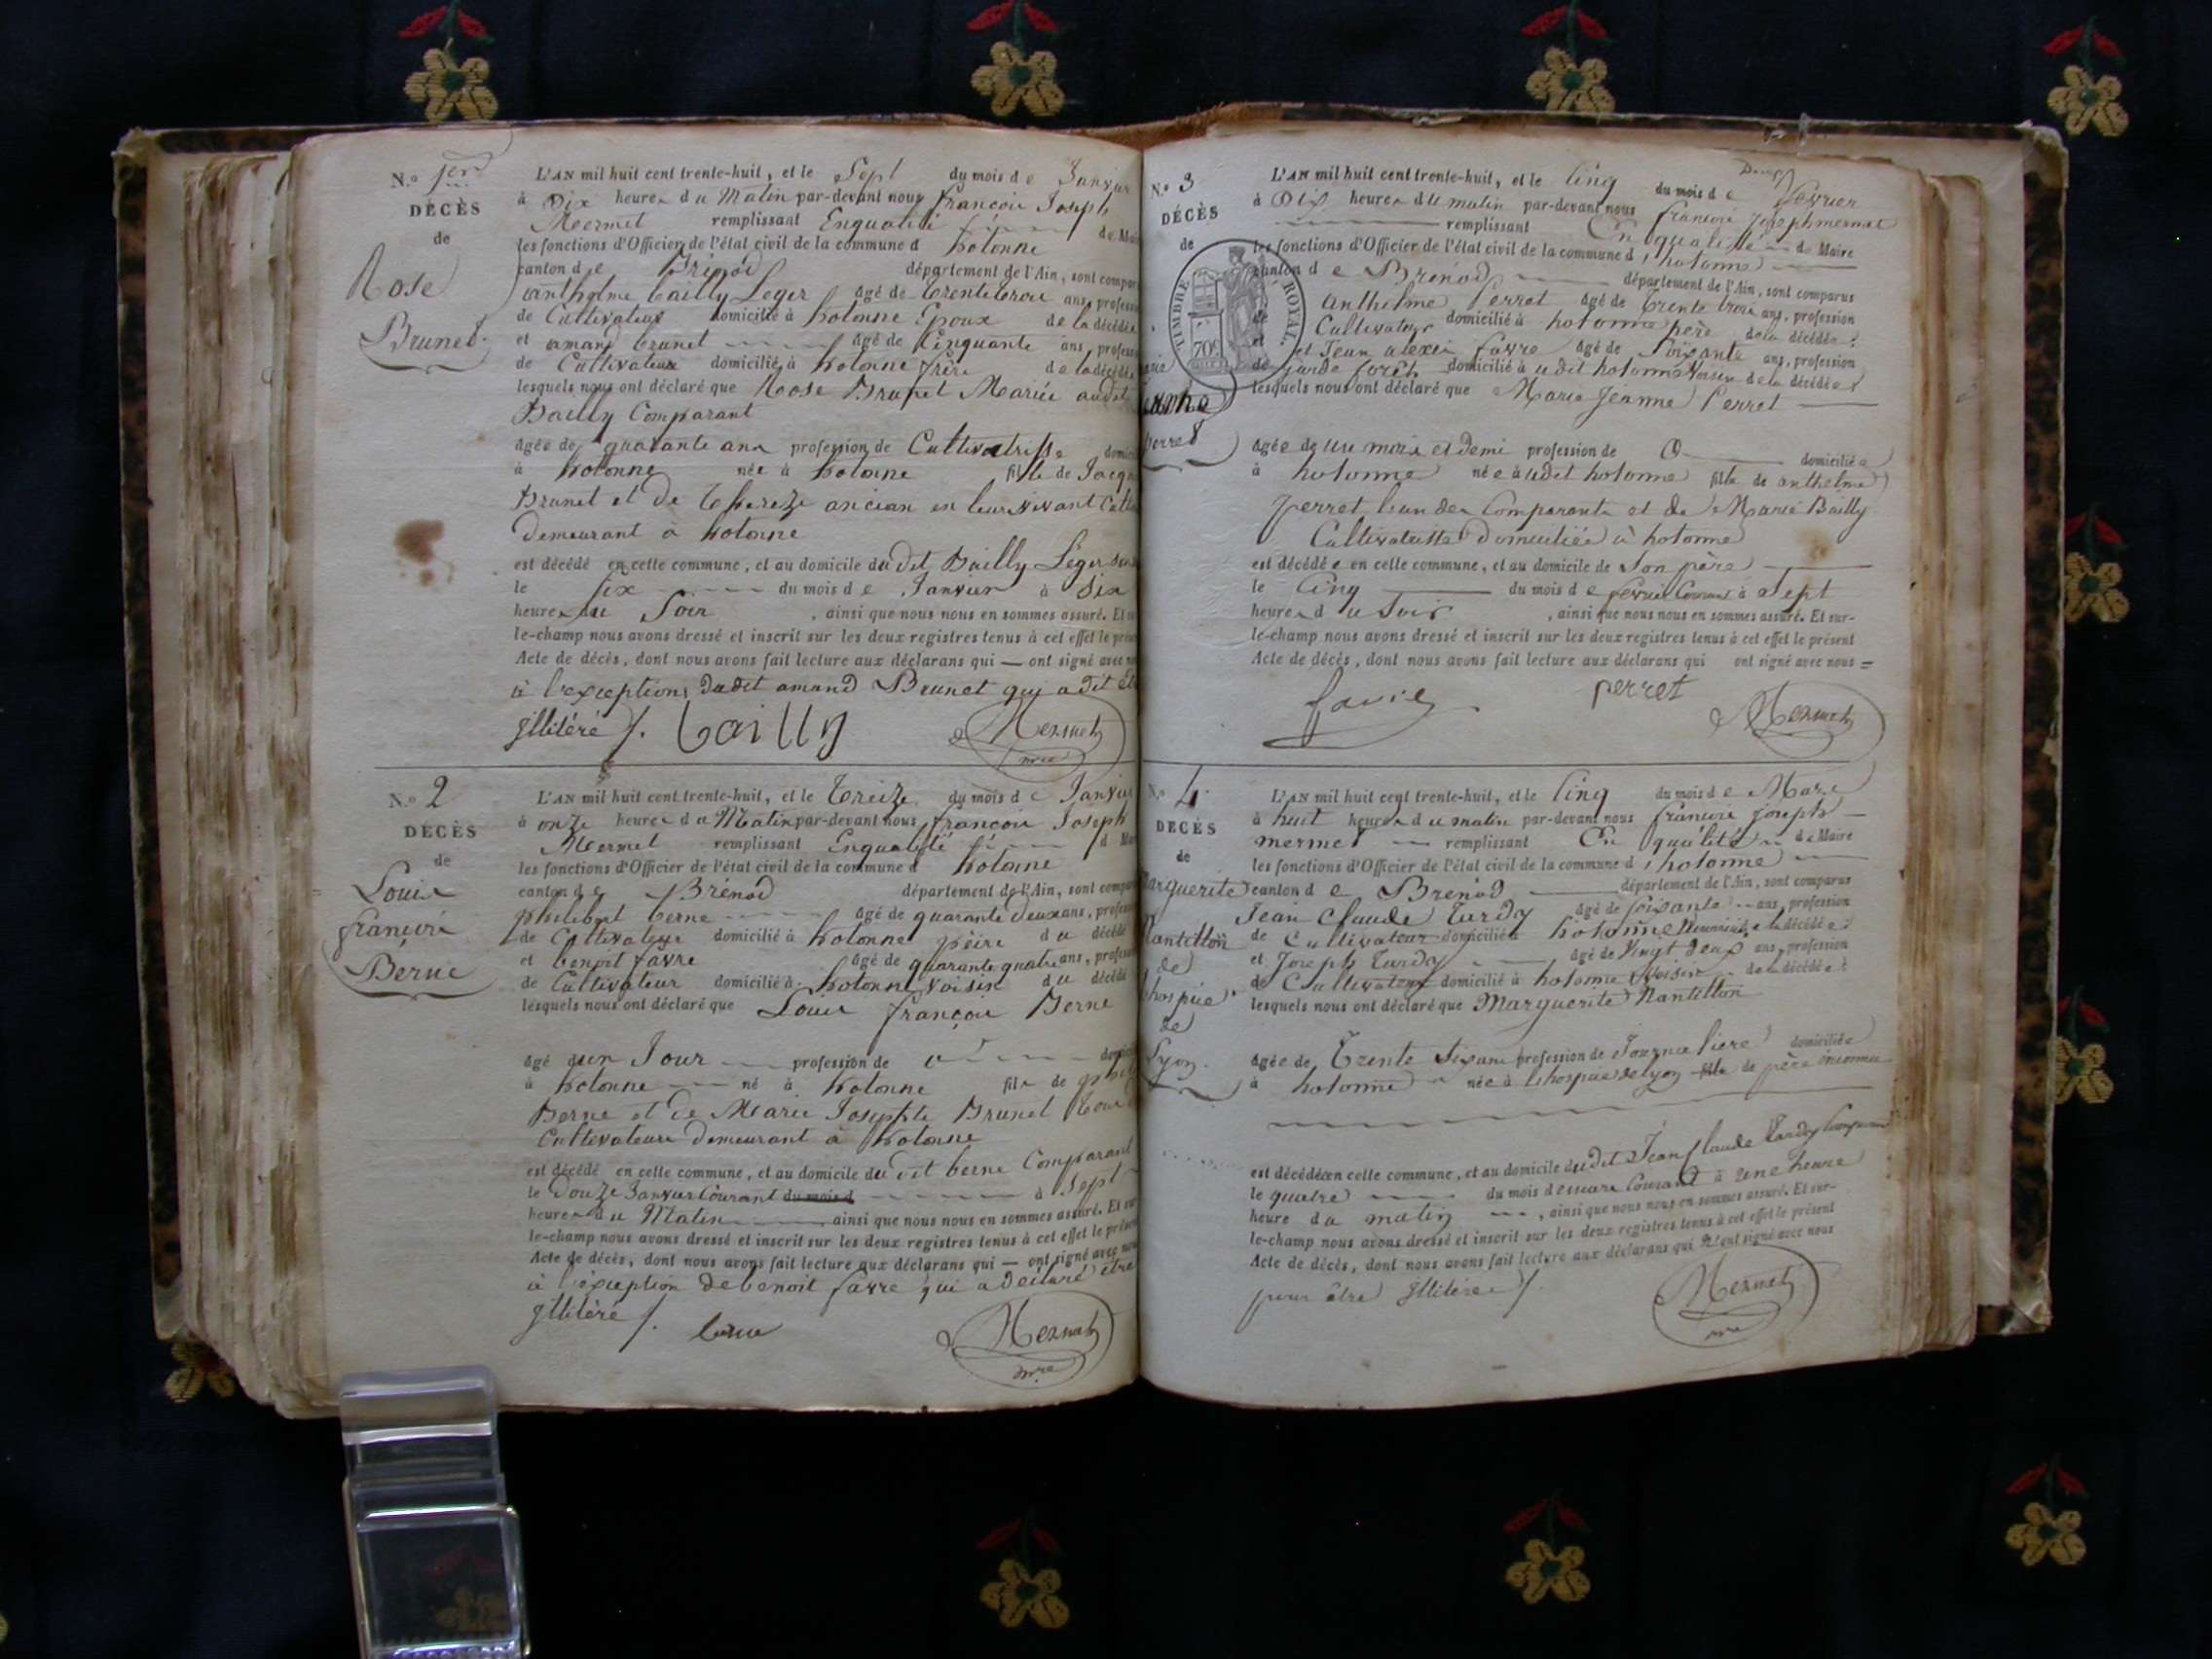 N.º 1er
DÉCÈS
de
Rose
Brunet
L'AN mil huit cent trente-huit, et le Sept du mois de Janvier
à Dix heures du Matin par-devant nous françois Joseph
Mermet remplissant Enqualité de Mai
les fonctions d'Officier de l'état civil de la commune d hotonne
canton de Brénod département de l'Ain, sont compar
anthelme bailly Leger agé de trente trois ans, professi
de Cultivateur domicilié à hotonne Epoux de la décédée
et amand brunet agé de Cinquante ans, profess
de Cultivateur domicilié à hotonne frère de la décédé
lesquels nous ont déclaré que Rose Brunet Mariée audit
Bailly Comparant
agée de quarante ans profession de Cultivatrisse domici
à hotonne née à hotonne fille de Jacq
Brunet et de Thereze ancian en leur vivant Cult
demeurant à hotonne
est décédé en cette commune, et au domicile dudit Bailly Léger
le Six du mois de Janvier à Six
heures du Soir, ainsi que nous nous en sommes assuré. Et
le-champ nous avons dressé et inscrit sur les deux registres tenus à cet effet le prése
Acte de décès, dont nous avons fait lecture aux déclarans qui — ont signé avec
à l'exception dudit amand Brunet qui a dit
jllitéré ./. bailly Mermet
mre
N.º 2
DÉCÈS
de
Louis
françois
Berne
L'AN mil huit cent trente-huit, et le treize du mois de Janvier
à onze heures du Matin par-devant nous françois Joseph
Mermet remplissant Enqualité d Mai
les fonctions d'Officier de l'état civil de la commune d hotonne
canton de Brénod département de l'Ain, sont compar
philibert berne agé de quarante deux ans, profess
de Cultivateur domicilié à hotonne père du décédé
et benoit favre agé de quarante quatre ans, profess
de Cultivateur domicilié à hotonne voisin du décédé
lesquels nous ont déclaré que Louis françois Berne
agé d'un Jour profession de domici
à hotonne né à hotonne fils de phil
Berne et de Marie Josephte Brunet
Cultivateurs demeurant à hotonne
est décédé en cette commune, et au domicile dudit berne Comparant
le Douze Janvier Courant du mois d à Sept
heures du Matin, ainsi que nous nous en sommes assuré. Et sur
le-champ nous avons dressé et inscrit sur les deux registres tenus à cet effet le prése
Acte de décès, dont nous avons fait lecture aux déclarans qui — ont signé avec nou
à l'exception de benoit favre qui a déclaré être
jllitéré ./. berne Mermet
mre
N.º 3
DÉCÈS
de
TIMBRE ROYAL
70c
Jeanne
perret
L'AN mil huit cent trente-huit, et le Cinq du mois de fevrier
à Dix heures du matin par-devant nous francois joseph mermet
remplissant En qualité de Maire
les fonctions d'Officier de l'état civil de la commune d'hotonne
canton de Brenod département de l'Ain, sont comparus
Anthelme Perret agé de trente trois ans, profession
de Cultivateur domicilié à hotonne père de la décédée
et Jean alexis favre agé de Soixante ans, profession
de garde forêt domicilié à udit hotonne Voisin de la décédée
lesquels nous ont déclaré que Marie Jeanne Perret
agée de un mois et Demi profession de domiciliée
à hotonne née audit hotonne fille de anthelme
perret l'un des Comparants et de Marie Bailly
Cultivatrisse Domiciliée à hotonne
est décédée en cette commune, et au domicile de Son père
le Cinq du mois de fevrier Courant à Sept
heures du Soir, ainsi que nous nous en sommes assuré. Et sur-
le-champ nous avons dressé et inscrit sur les deux registres tenus à cet effet le présent
Acte de décès, dont nous avons fait lecture aux déclarans qui ont signé avec nous
favre perret Mermet
N.º 4
DÉCÈS
de
Marguerite
Nantillon
de
lhospice
de
Lyon
L'AN mil huit cent trente-huit, et le Cinq du mois de Mars
à huit heures du matin par-devant nous francois joseph
mermet remplissant En qualité de Maire
les fonctions d'Officier de l'état civil de la commune d'hotonne
canton de Brenod département de l'Ain, sont comparus
Jean Claude tardy agé de soixante ans, profession
de Cultivateur domicilié à hotonne de la décédée
et Joseph tardy agé de Vingt deux ans, profession
de Cultivateur domicilié à hotonne Voisin de la décédée
lesquels nous ont déclaré que Marguerite Nantillon
agée de trente Six ans profession de Journaliere domiciliée
à hotonne née à lhospice de Lyon fille de père inconnu
est décédée en cette commune, et au domicile dudit Jean Claude tardy Comparant
le quatre du mois de mars Courant à une heure
heure du matin, ainsi que nous nous en sommes assuré. Et sur-
le-champ nous avons dressé et inscrit sur les deux registres tenus à cet effet le présent
Acte de décès, dont nous avons fait lecture aux déclarans qui n'ont signé avec nous
pour être jllitérés ./. Mermet
mre